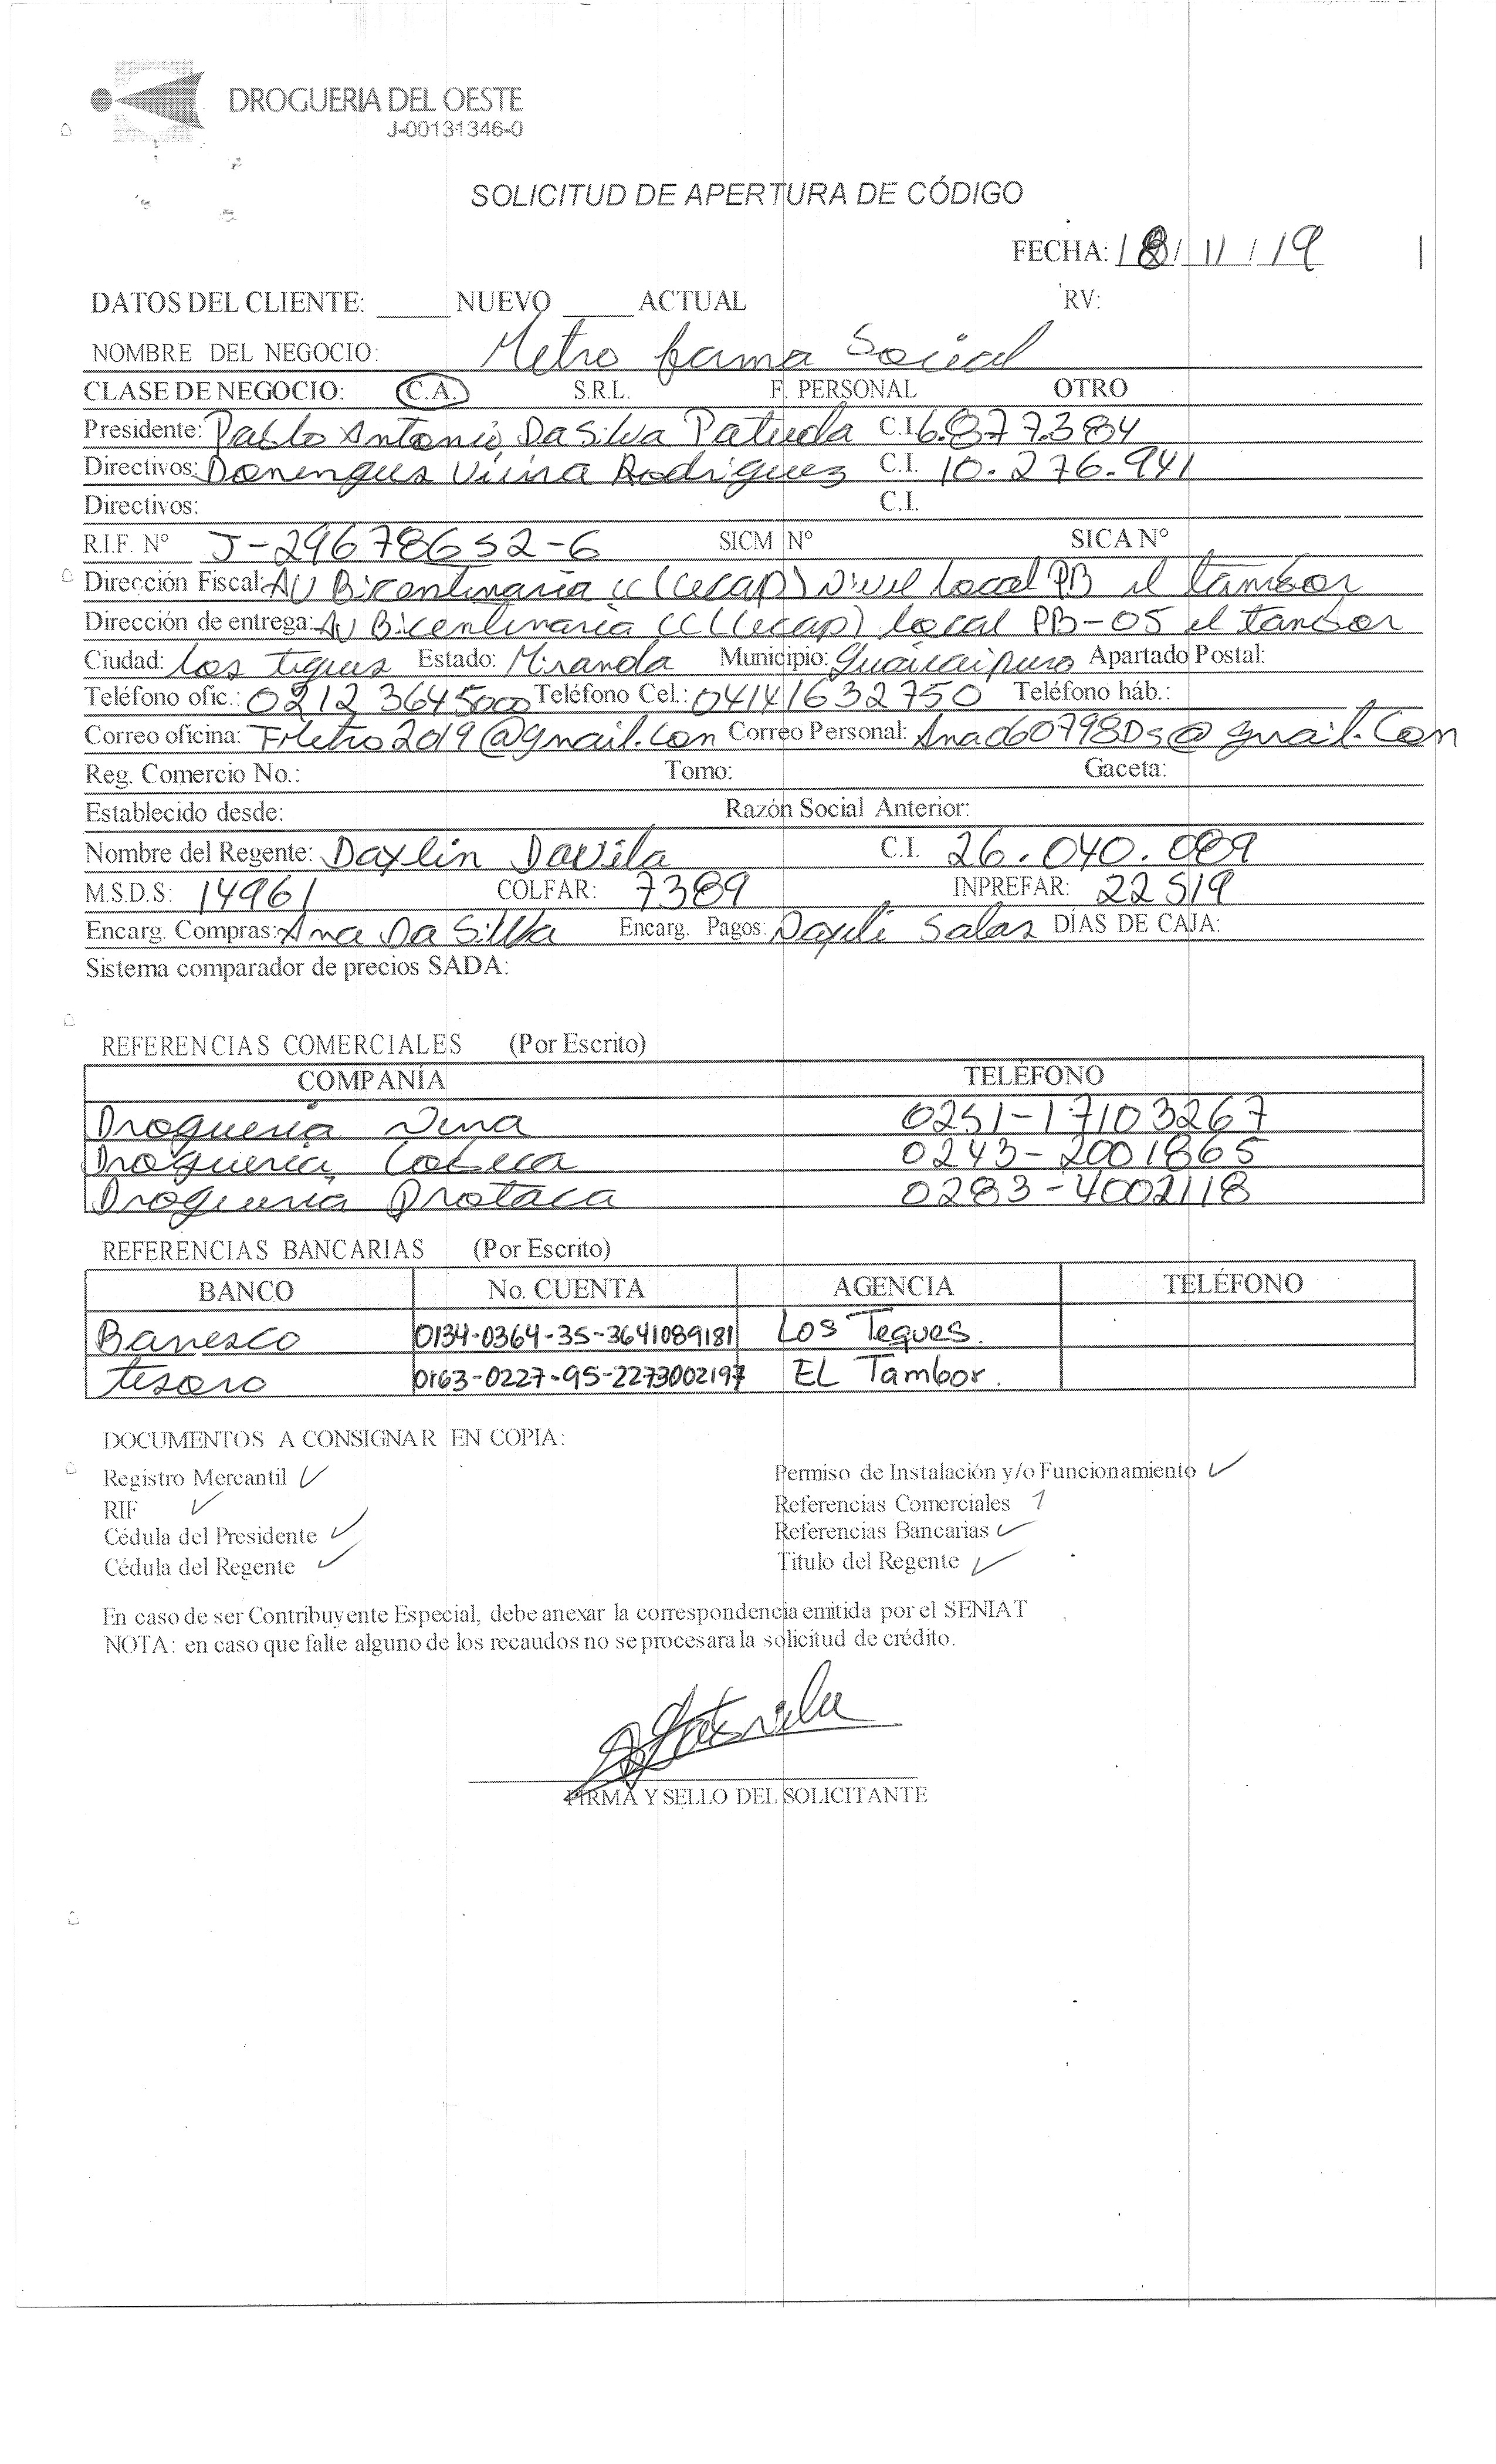 DROGUERIA DEL OESTE
J-00131346-0
SOLICITUD DE APERTURA DE CÓDIGO
FECHA: 18/11/19
DATOS DEL CLIENTE: _____ NUEVO _____ ACTUAL RV:
NOMBRE DEL NEGOCIO: Metro farma Social
CLASE DE NEGOCIO: C.A. S.R.L. F. PERSONAL OTRO
Presidente: Pablo Antonio Da Silva Patuela C.I. 6.877.384
Directivos: Domingus Vieira Rodriguez C.I. 10.276.941
Directivos: C.I.
R.I.F. Nº J-29678652-6 SICM Nº SICA Nº
Dirección Fiscal: AV Bicentenaria CC (Cecap) Nivel Local PB el tambor
Dirección de entrega: AV Bicentenaria CC (Cecap) local PB-05 el tambor
Ciudad: los teques Estado: Miranda Municipio: Guaicaipuro Apartado Postal:
Teléfono ofic.: 0212 3645000 Teléfono Cel.: 04141632750 Teléfono háb.:
Correo oficina: FMetro2019@gmail.com Correo Personal: Anad60798Ds@gmail.com
Reg. Comercio No.: Tomo: Gaceta:
Establecido desde: Razón Social Anterior:
Nombre del Regente: Daxlin Davila C.I. 26.040.089
M.S.D.S: 14961 COLFAR: 7389 INPREFAR: 22519
Encarg. Compras: Ana Da Silva Encarg. Pagos: Salas DÍAS DE CAJA:
Sistema comparador de precios SADA:
REFERENCIAS COMERCIALES (Por Escrito)
COMPANÍA TELÉFONO
Drogueria Nena 0251-17103267
Drogueria Cobeca 0243-2001865
Drogueria Drotaca 0283-4002118
REFERENCIAS BANCARIAS (Por Escrito)
BANCO No. CUENTA AGENCIA TELÉFONO
Banesco 0134-0364-35-3641089181 Los Teques.
tesoro 0163-0227-95-2273002197 EL Tambor.
DOCUMENTOS A CONSIGNAR EN COPIA:
Registro Mercantil ✓ Permiso de Instalación y/o Funcionamiento ✓
RIF ✓ Referencias Comerciales 1
Cédula del Presidente ✓ Referencias Bancarias ✓
Cédula del Regente ✓ Titulo del Regente ✓
En caso de ser Contribuyente Especial, debe anexar la correspondencia emitida por el SENIAT
NOTA: en caso que falte alguno de los recaudos no se procesara la solicitud de crédito.
FIRMA Y SELLO DEL SOLICITANTE